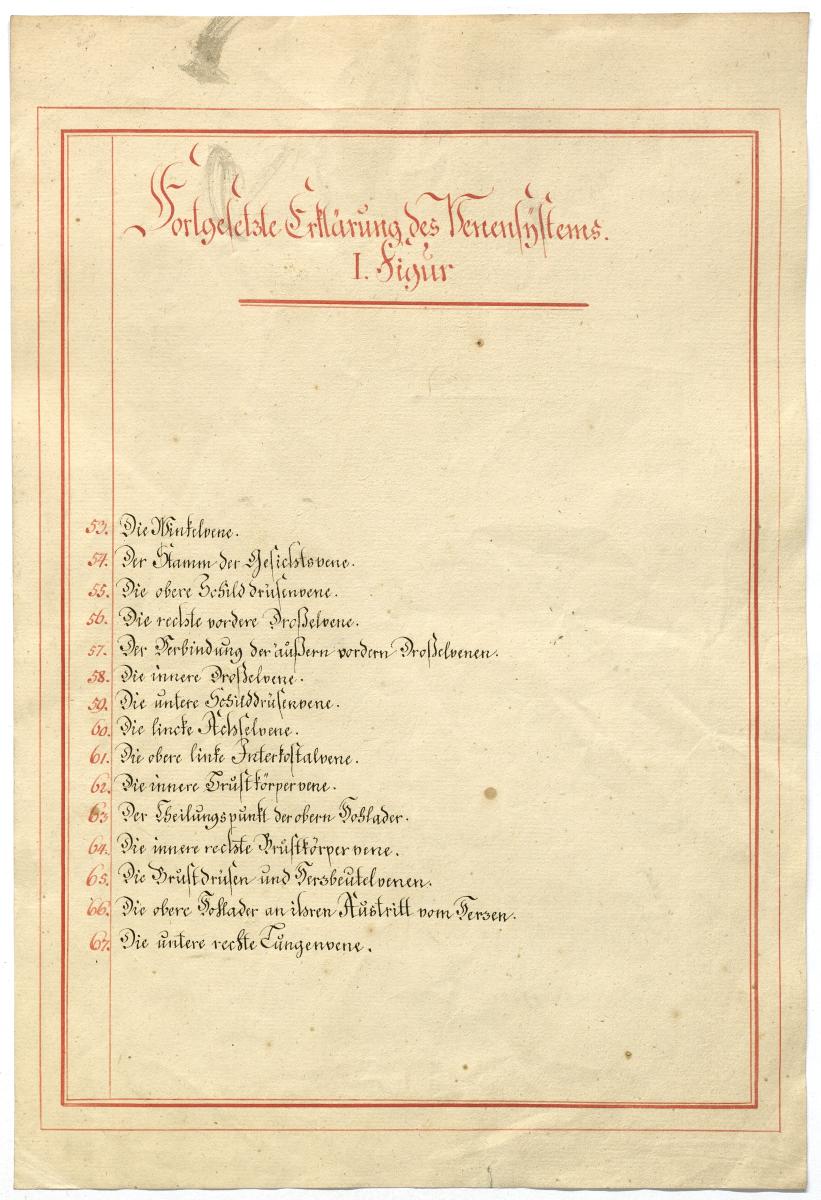 Fortgesetzte Erklärung des Venensÿstems.
I. Figur
53. Die Winkelvene.
54. Der Stamm der Gesichtsvene.
55. Die obere Schilddrüsenvene.
56. Die rechte vordere Droßelvene.
57. Der Verbindung der äußern vordern Droßelvenen.
58. Die innere Droßelvene.
59. Die untere Schilddrüsenvene.
60. Die lincke Achselvene.
61. Die obere linke Interkostalvene.
62. Die innere Brustkörpervene.
63 Der Theilungspunkt der obern Hohlader.
64. Die innere rechte Brustkörpervene.
65. Die Brustdrüsen und Herzbeutelvenen.
66. Die obere Hohlader an ihren Austritt vom Herzen.
67. Die untere rechte Lungenvene.